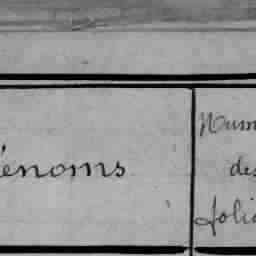 énoms
Num
des
folio